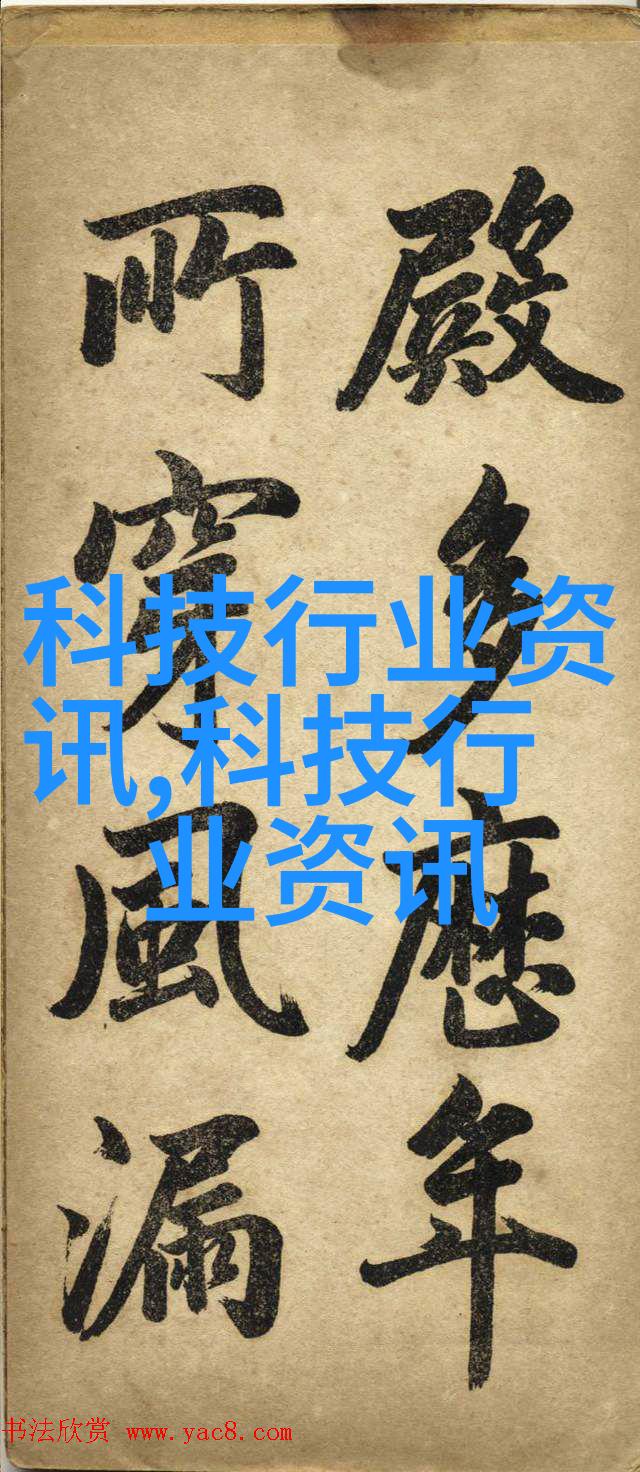 殿多歷年
所穿風漏
科技行业资
讯,科技行
业资讯
书法欣赏 www.yac8.com